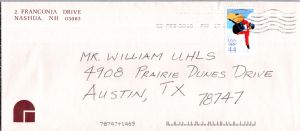 2 FRANCONIA DRIVE
NASHUA, NH 03063
FEB 2010 PM
USA
44
MR. WILLIAM UHLS
4908 PRAIRIE DUNES DRIVE
AUSTIN, TX
78747
78747+1469